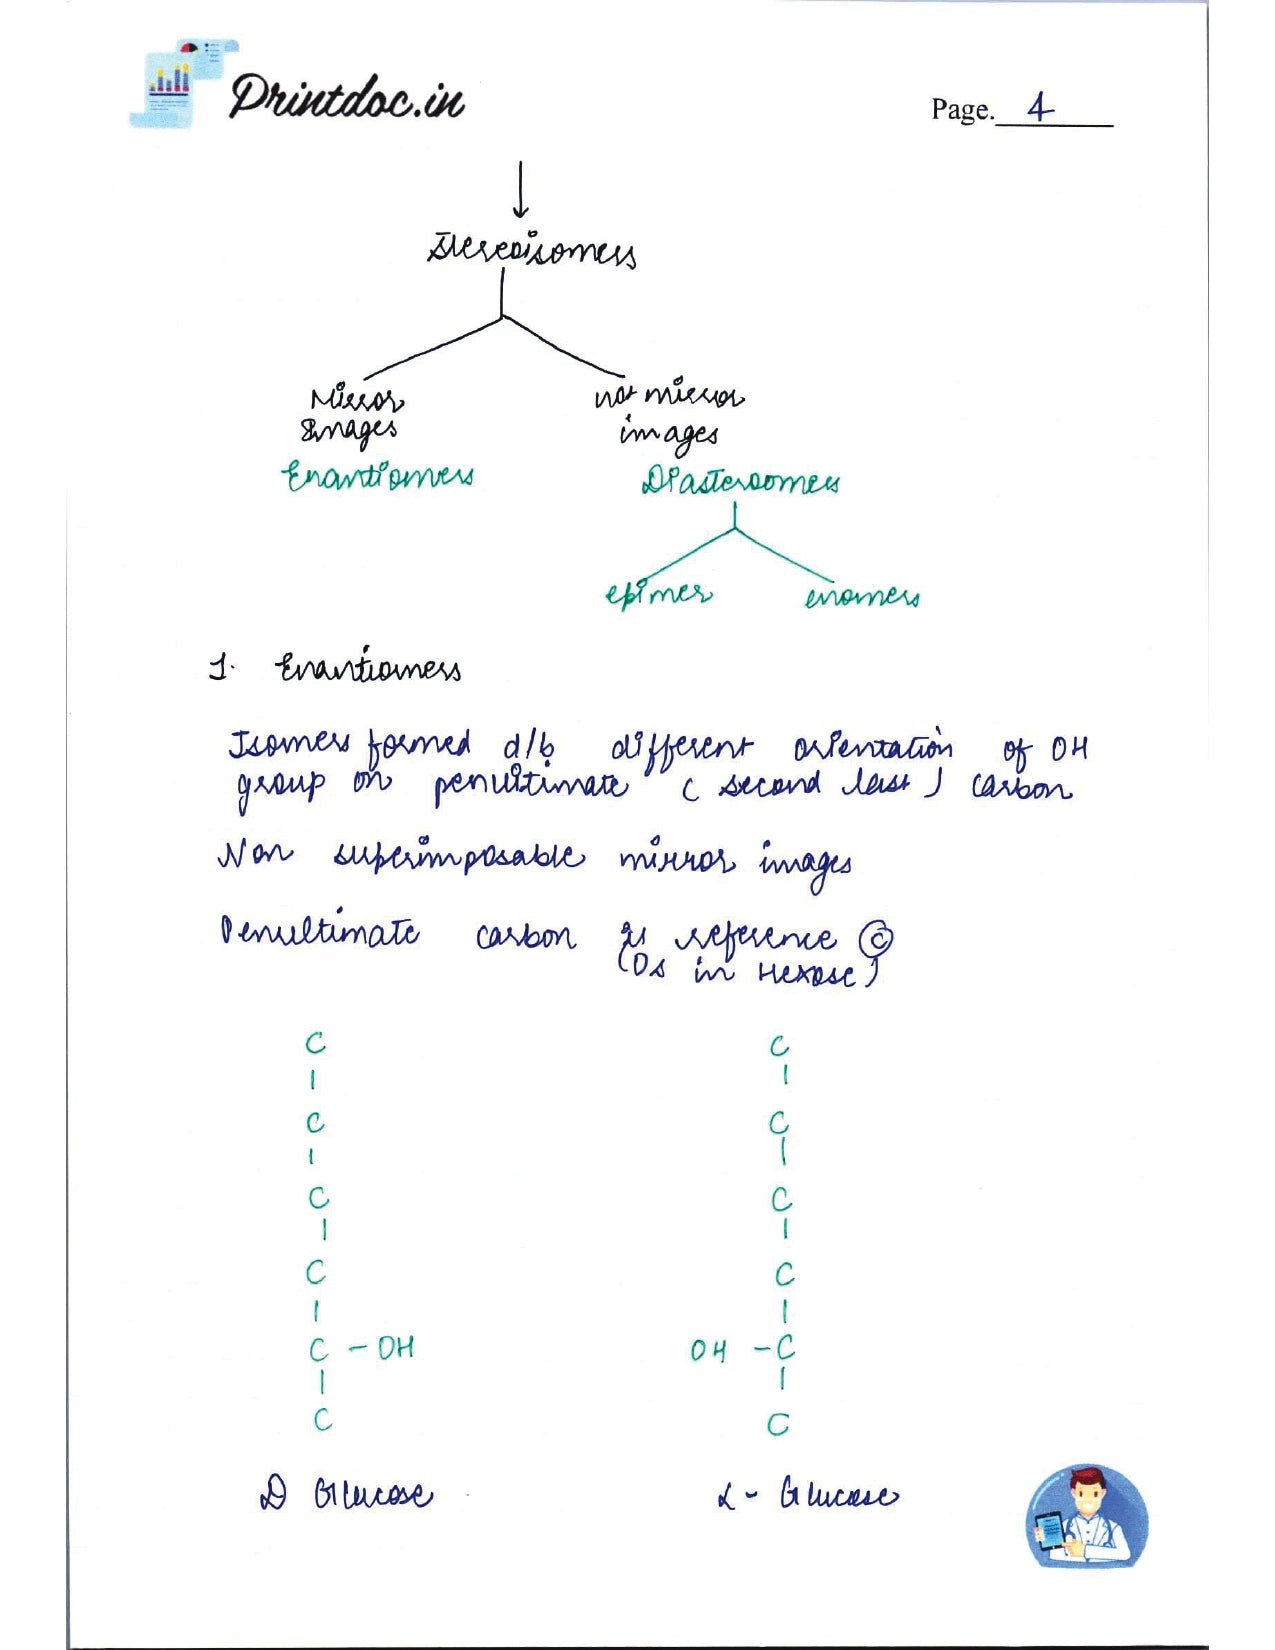 Printdoc.in
Page. 4
Stereoisomers
Mirror not mirror
Images images
Enantiomers Diasteroomers
epimer enomers
1. Enantiomers
Isomers formed d/b different orientation of OH
group on penultimate (second last) carbon
Non superimposable mirror images
Penultimate carbon is reference C
(Os in Hexose)
C C
C C
C C
C C
C - OH OH - C
C C
D Glucose L - Glucose